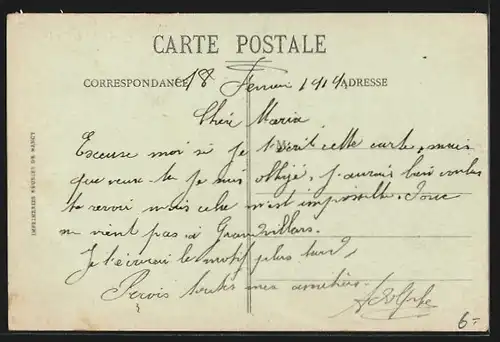 CARTE POSTALE
CORRESPONDANCE ADRESSE
18 Fevrier 1919
Chère Maria
Excuse moi si je t'écrit cette carte, mais
que veux-tu je suis obligé, j'aurais bien voulu
te revoir mais cela m'est impossible. Donc
ne vient pas à Grandvillars.
Je t'écrirai le motif plus tard,
Reçois toutes mes amitiés.
Adolphe
IMPRIMERIES RÉUNIES DE NANCY
6-